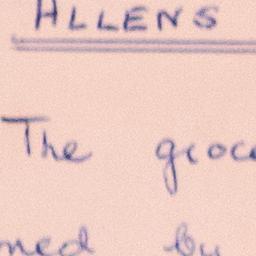 ALLENS
The groce
ned by